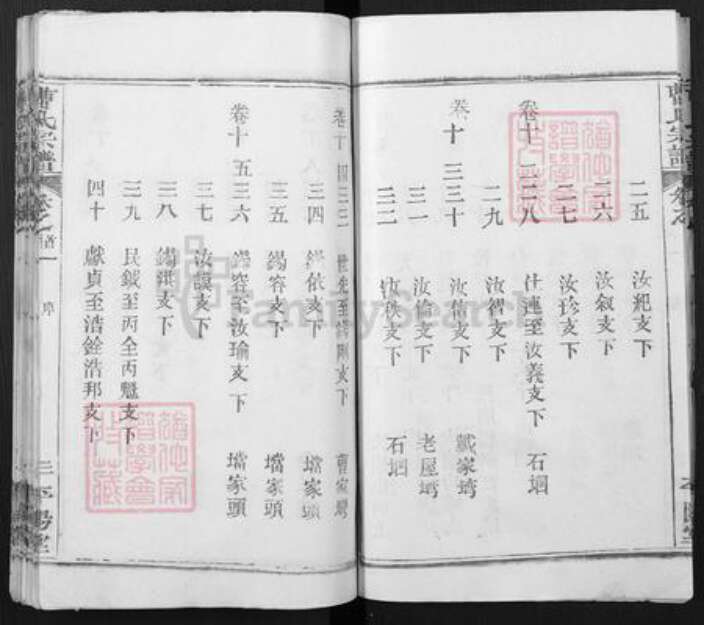 二五 汝紀支下
二六 汝叙支下
二七 汝珍支下
卷十二 二八 仕連至汝義支下 石堌
二九 汝智支下
卷十三 三十 汝脩支下 戴家塆
三一 汝倫支下 老屋塆
三二 汝秩支下 石堌
卷十四 三三 世先至錫剛支下 曹家塆
三四 錫依支下 壋家頭
三五 錫容支下 壋家頭
卷十五 三六 錫容至汝瑜支下 壋家頭
三七 汝讓支下
三八 錫洪支下
三九 民鉞至丙全丙魁支下
四十 獻貞至浩銓浩邦支下
曹氏宗譜 卷之首一 序 三
曹氏宗譜
FamilySearch